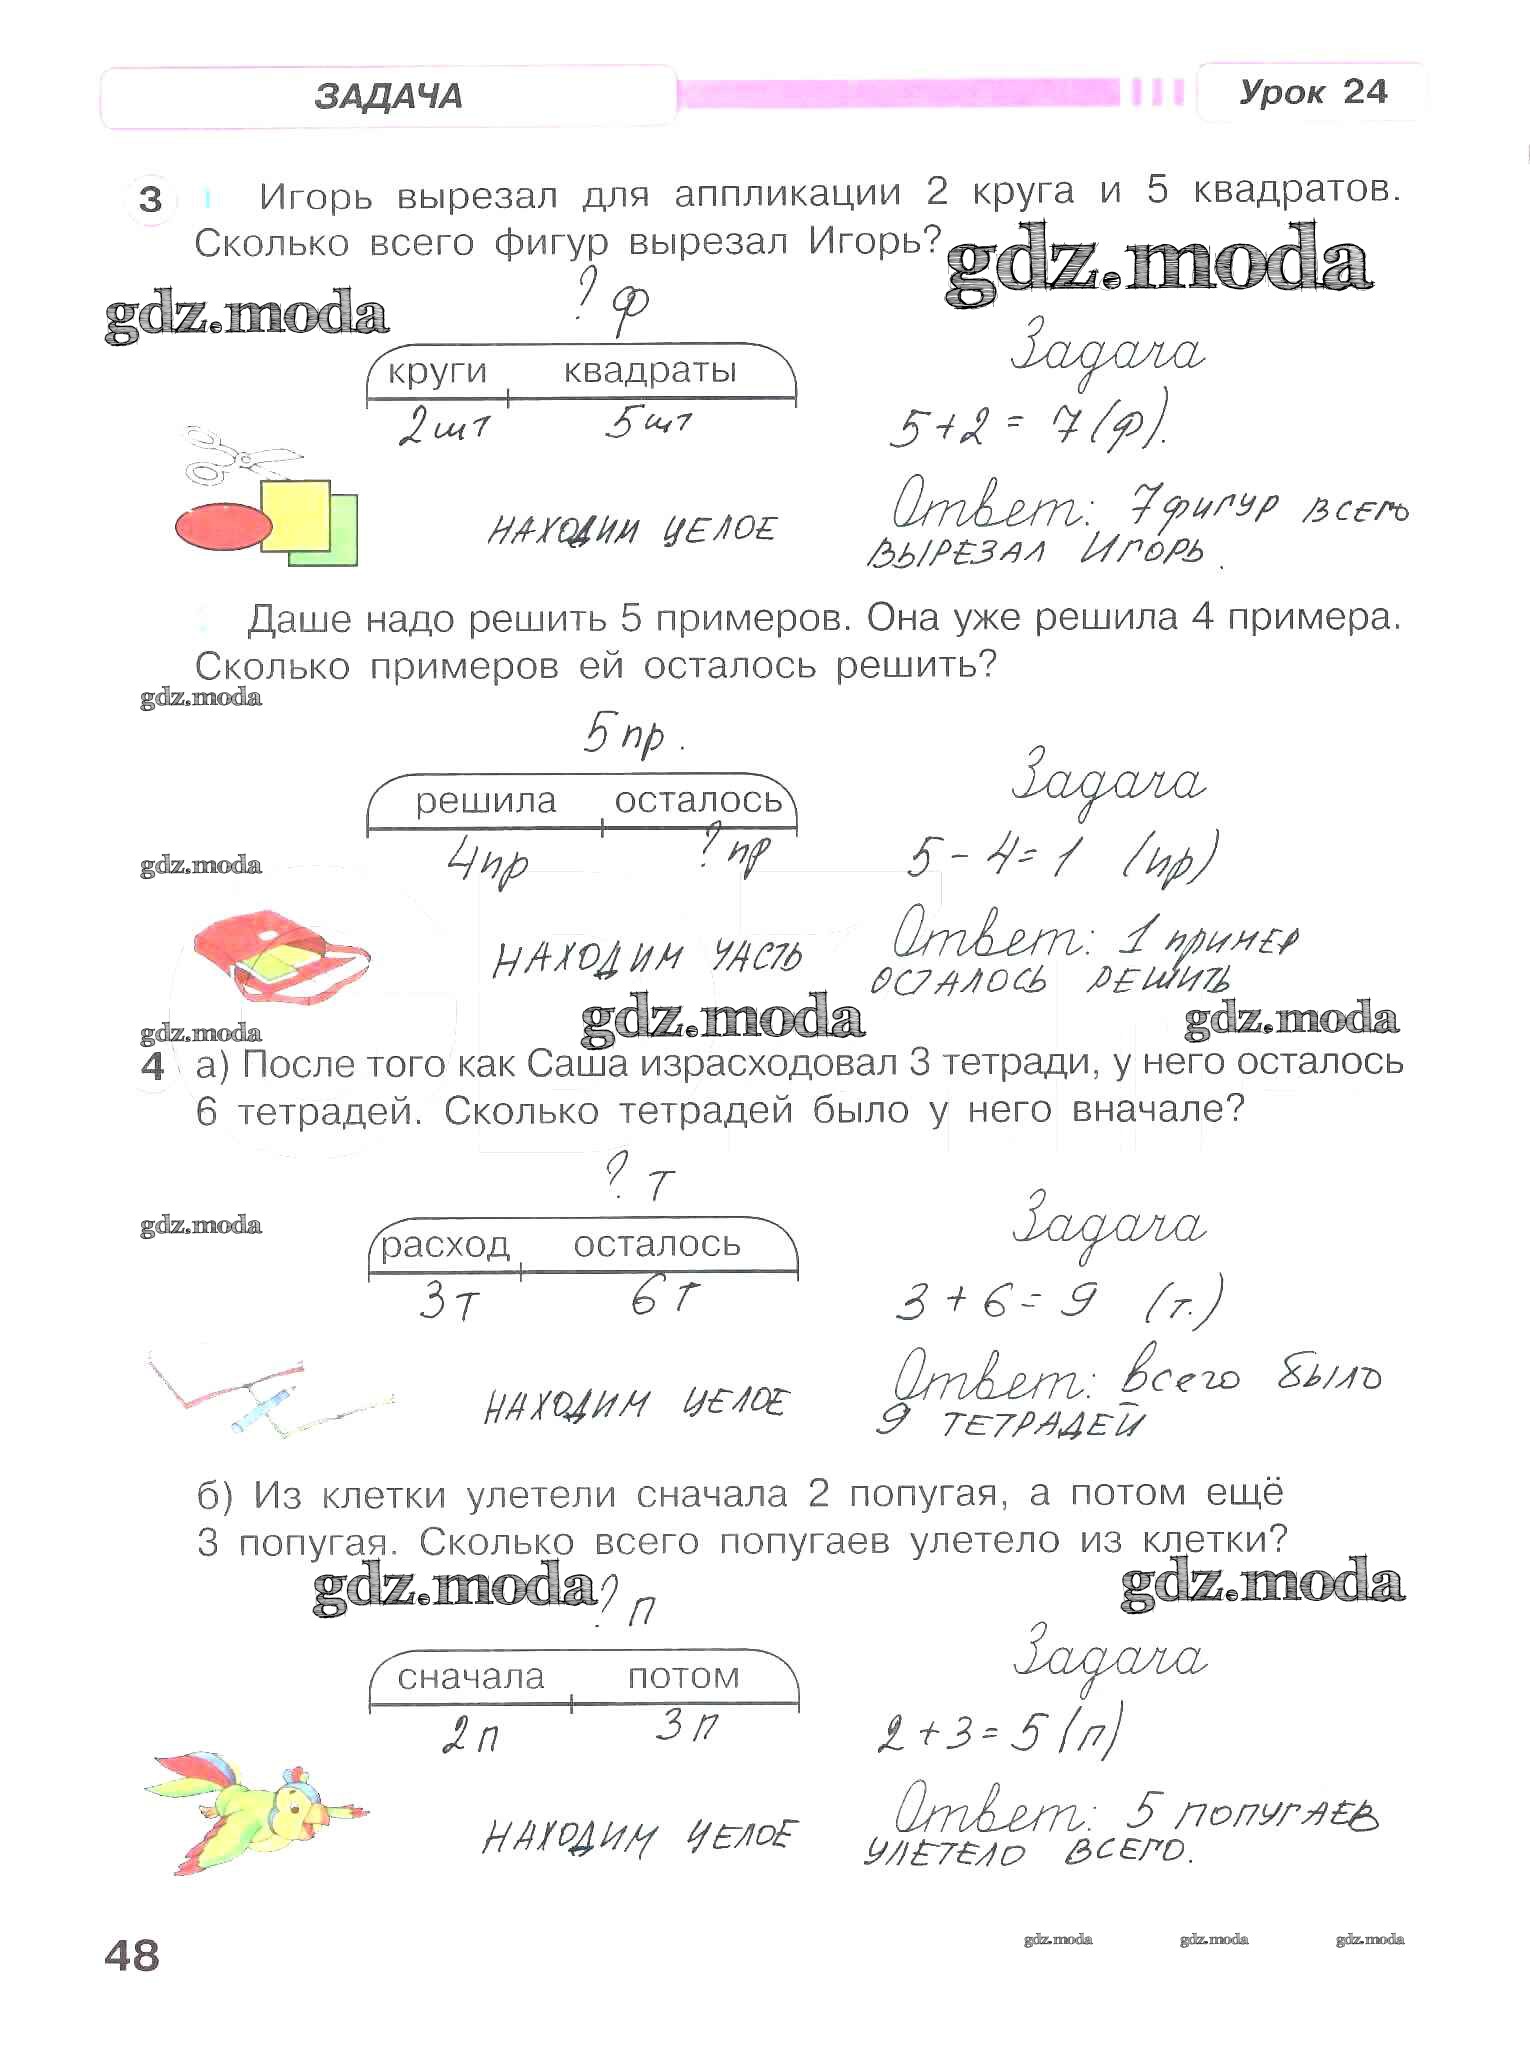 ЗАДАЧА
Урок 24
3 Игорь вырезал для аппликации 2 круга и 5 квадратов.
Сколько всего фигур вырезал Игорь?
gdz.moda
gdz.moda
? ф
круги квадраты
2 шт 5 шт
Задача
5+2 = 7 (ф).
НАХОДИМ ЦЕЛОЕ
Ответ: 7 фигур всего
ВЫРЕЗАЛ ИГОРЬ.
Даше надо решить 5 примеров. Она уже решила 4 примера.
Сколько примеров ей осталось решить?
gdz.moda
5 пр.
решила осталось
4 пр ? пр
Задача
5 - 4 = 1 (пр)
gdz.moda
НАХОДИМ ЧАСТЬ
Ответ: 1 ПРИМЕР
ОСТАЛОСЬ РЕШИТЬ
gdz.moda
gdz.moda
gdz.moda
4 а) После того как Саша израсходовал 3 тетради, у него осталось
6 тетрадей. Сколько тетрадей было у него вначале?
? т
gdz.moda
расход осталось
3 т 6 т
Задача
3 + 6 = 9 (т.)
НАХОДИМ ЦЕЛОЕ
Ответ: всего было
9 ТЕТРАДЕЙ
б) Из клетки улетели сначала 2 попугая, а потом ещё
3 попугая. Сколько всего попугаев улетело из клетки?
gdz.moda
gdz.moda
? п
сначала потом
2 п 3 п
Задача
2 + 3 = 5 (п)
НАХОДИМ ЦЕЛОЕ
Ответ: 5 ПОПУГАЕВ
УЛЕТЕЛО ВСЕГО.
48
gdz.moda gdz.moda gdz.moda